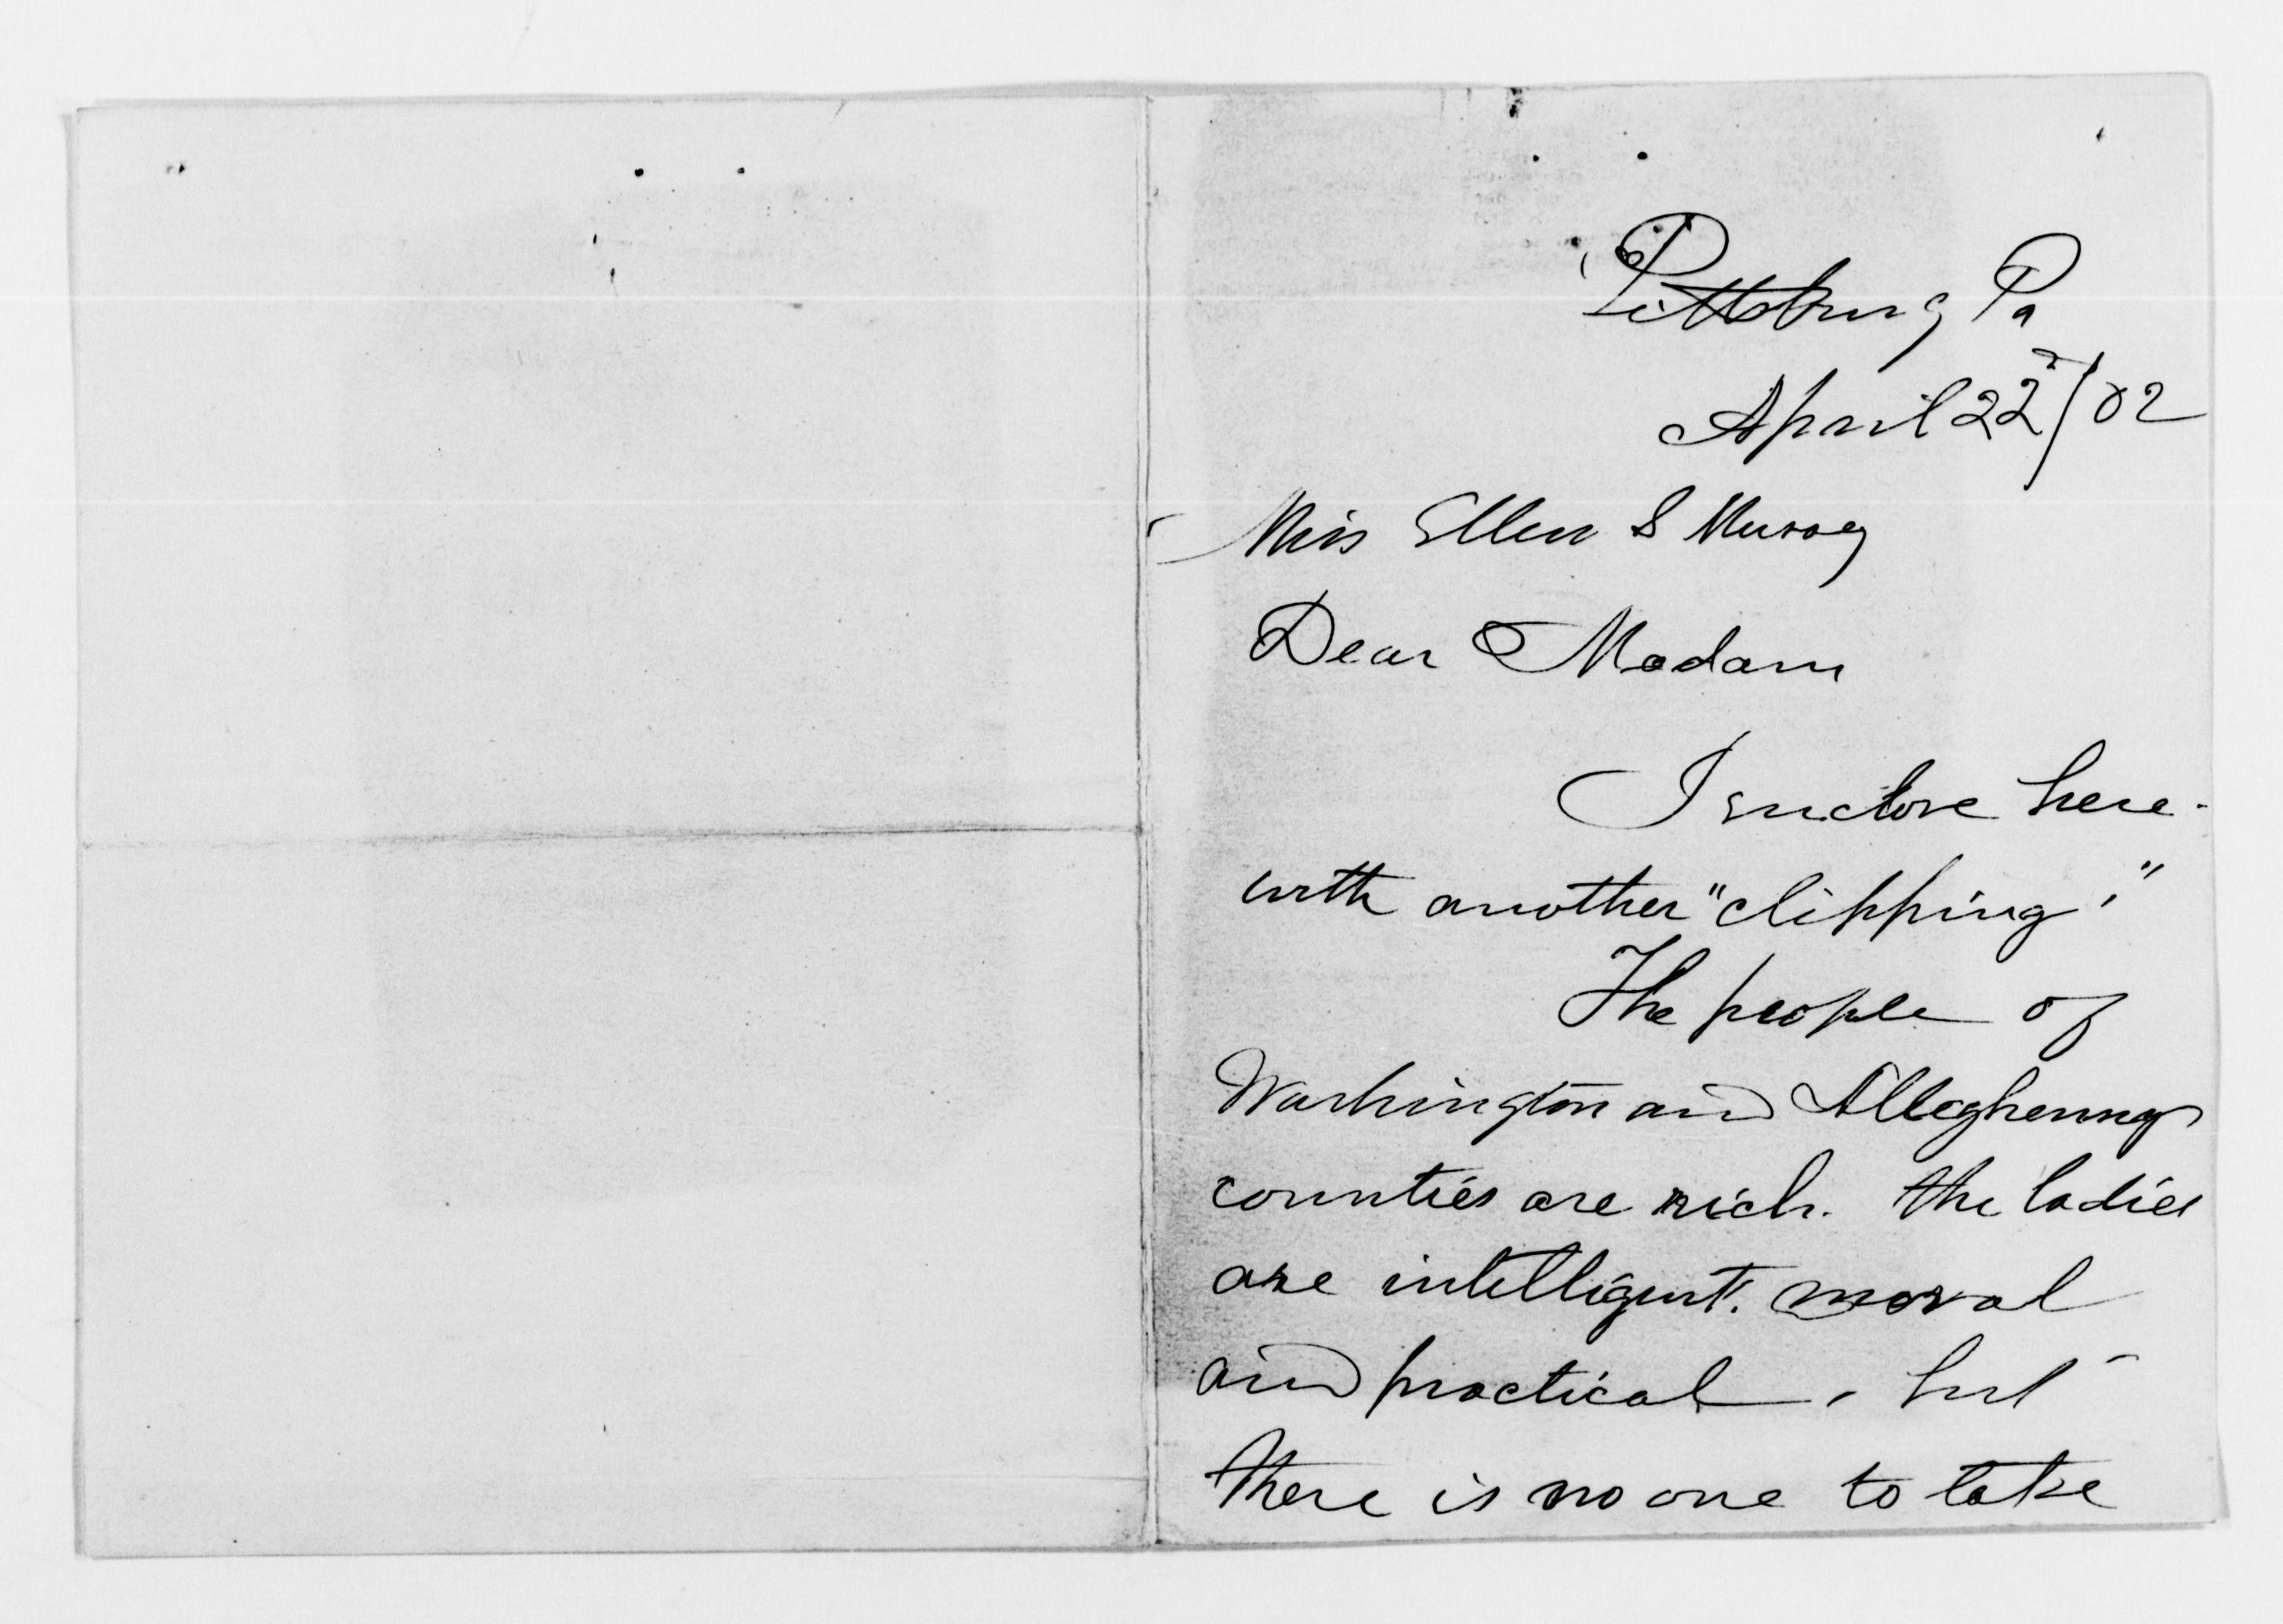 Pittsburg Pa
April 22^d/02
Miss Ellen S Mussey
Dear Madam
I enclose here-
with another "clipping".
The people of
Washington and Allegheny
counties are rich. The ladies
are intelligent. moral
and practical, but
there is no one to take